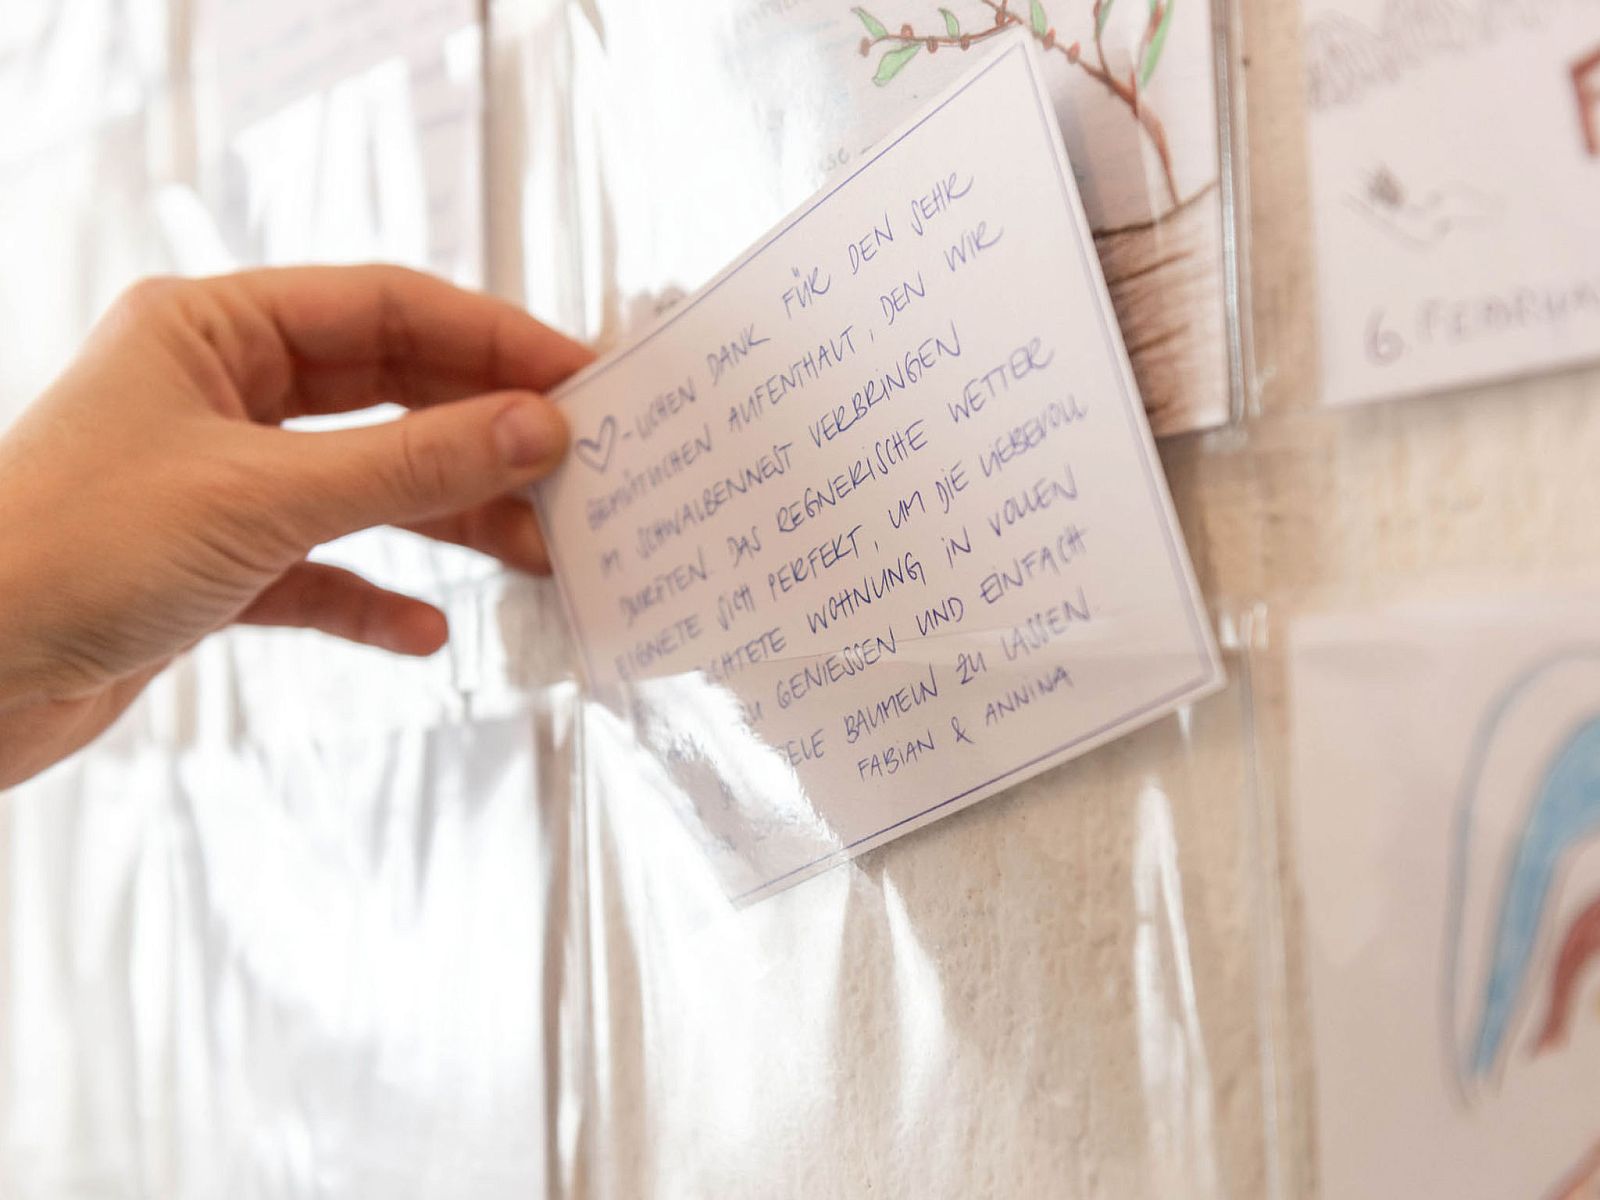 ♡-LICHEN DANK FÜR DEN SEHR
GEMÜTLICHEN AUFENTHALT, DEN WIR
IM SCHWALBENNEST VERBRINGEN
DURFTEN. DAS REGNERISCHE WETTER
EIGNETE SICH PERFEKT, UM DIE LIEBEVOLL
WOHNUNG IN VOLLEN
ZU GENIESSEN UND EINFACH
BAUMELN ZU LASSEN.
FABIAN & ANNINA
6. FEBRUA